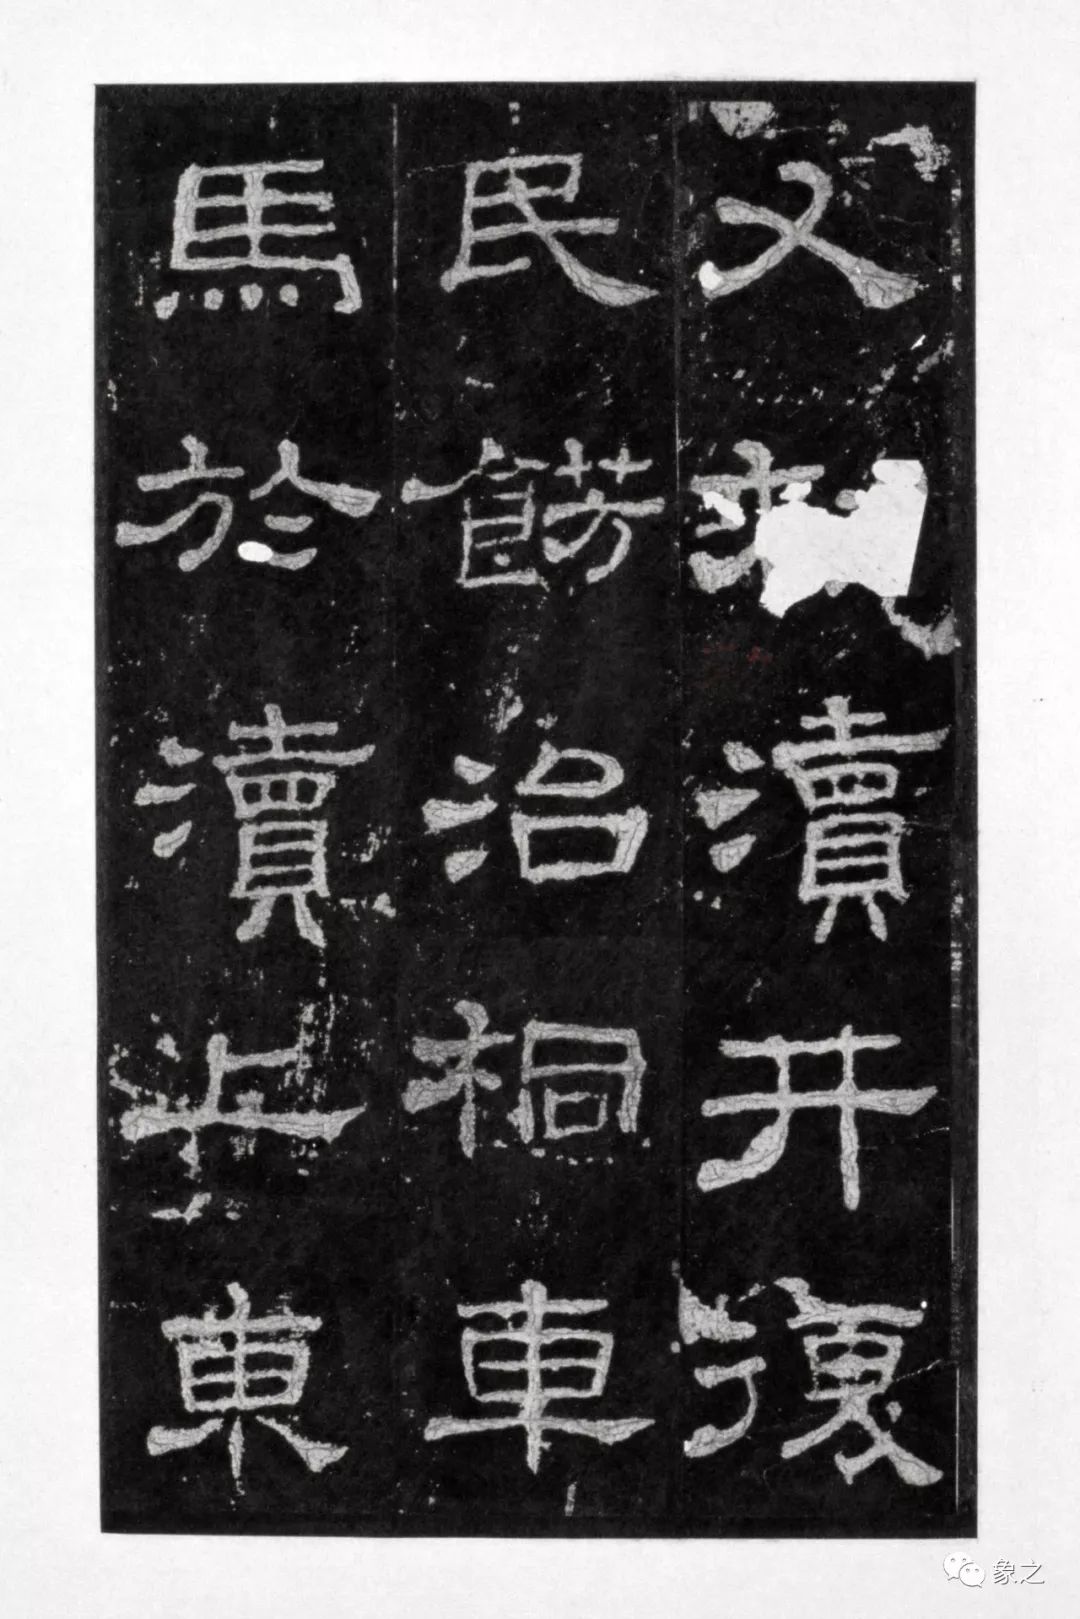 又瀆井復
民餝治桐車
馬於瀆上東
象之